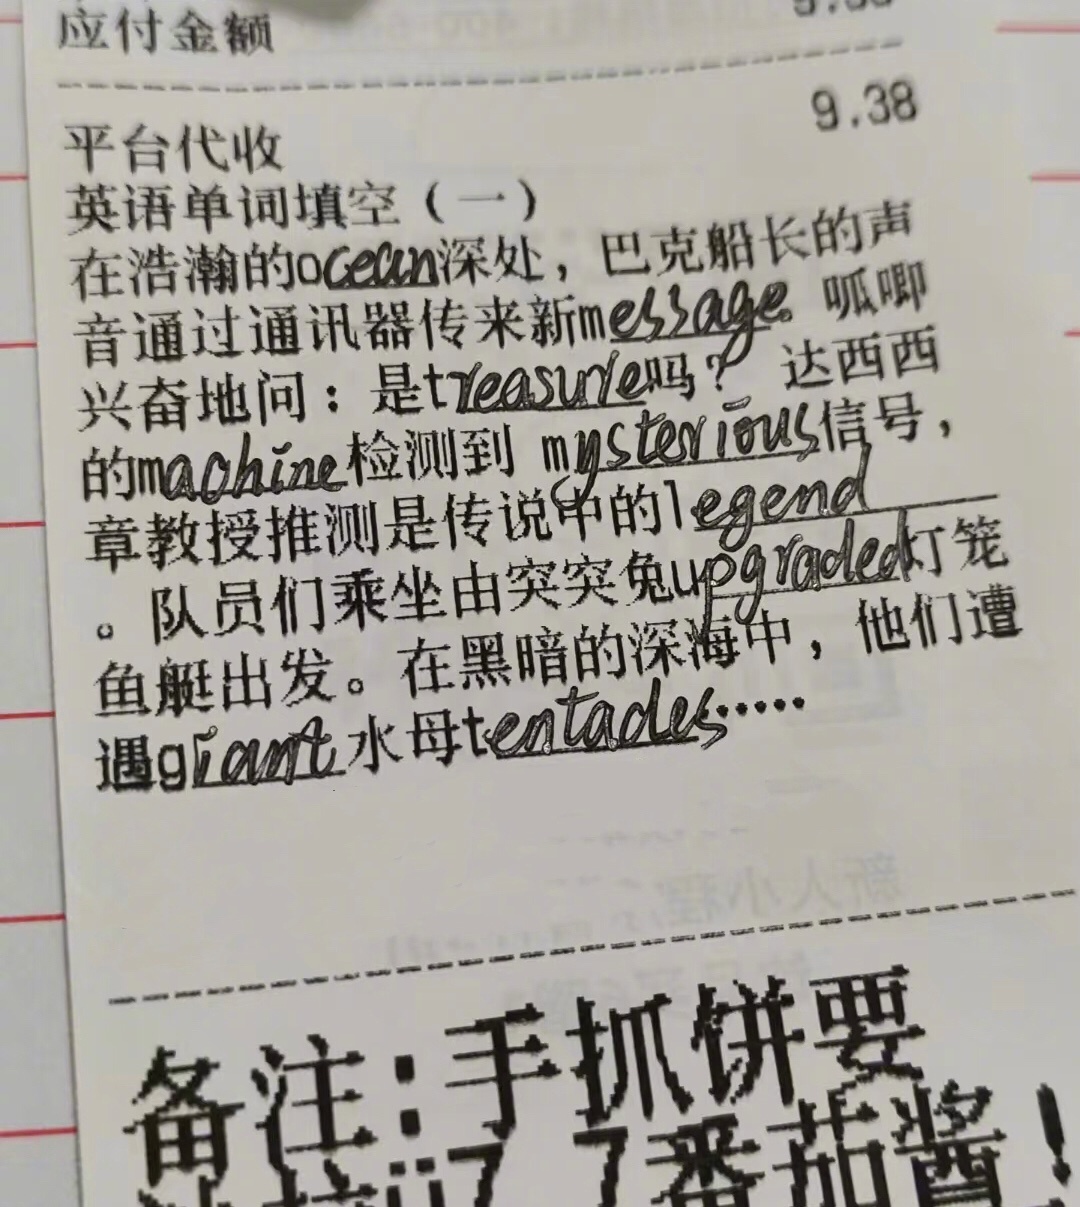 应付金额
9.38
平台代收
英语单词填空（一）
在浩瀚的ocean深处，巴克船长的声
音通过通讯器传来新message。呱唧
兴奋地问：是treasure吗？ 达西西
的machine检测到 mysterious信号，
章教授推测是传说中的legend
。队员们乘坐由突突兔upgraded灯笼
鱼艇出发。在黑暗的深海中，他们遭
遇giant水母tentacles·····
备注：手抓饼要
番茄酱！